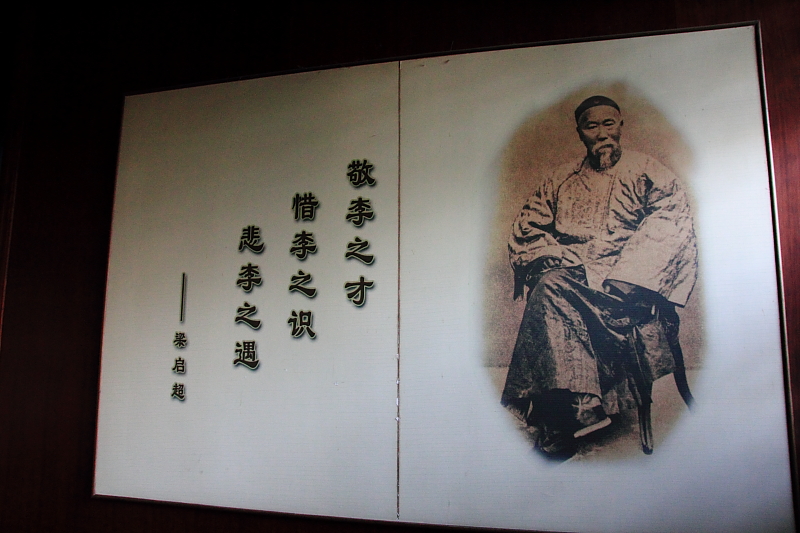 敬李之才
惜李之识
悲李之遇
——梁启超